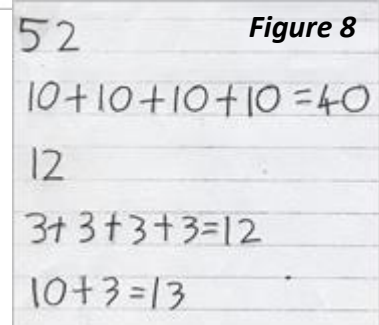 52 Figure 8
10+10+10+10=40
12
3+3+3+3=12
10+3=13